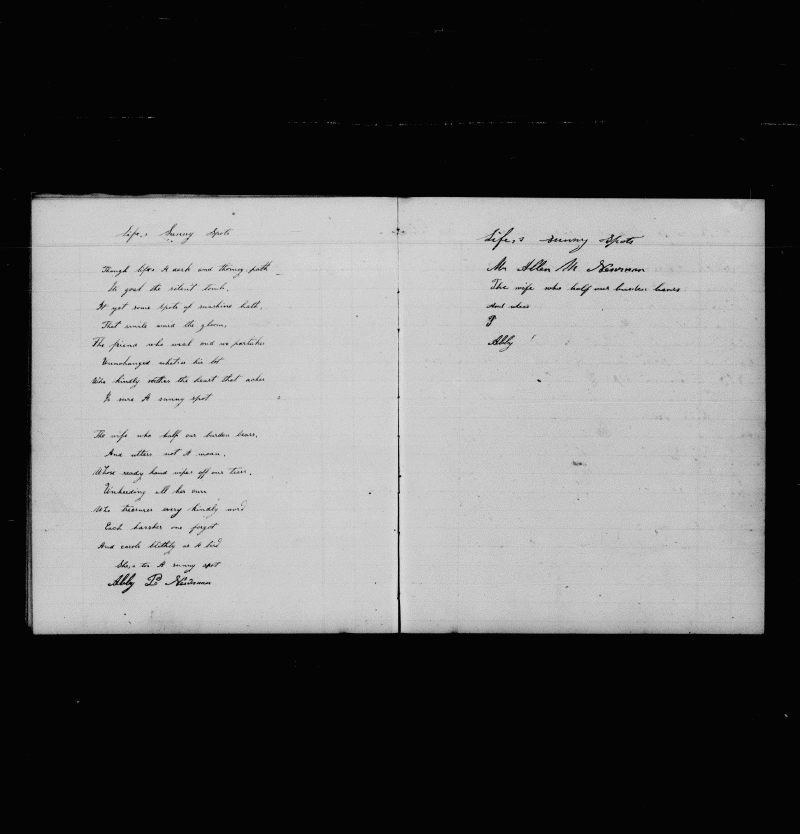 Life,s Sunny Spots
Though life's A dark and thorny path
Its goal the silent tomb,
It yet some spots of sunshine hath,
That smile amid the gloom,
The friend who weal and wo partakes
Unchanged whatever his lot
Who kindly soothes the heart that aches
Is sure A sunny spot
The wife who half our burden bears,
And utters not A moan,
Whose ready hand wipes off our tears,
Unheeding all her own
Who treasures every kindly word
Each harsher one forgot
And carols blithly as A bird
She,s too A sunny spot
Abby P Newman
Life,s sunny Spots
Mr Allen M Newman
The wife who half our burden bears
And
P
Abby